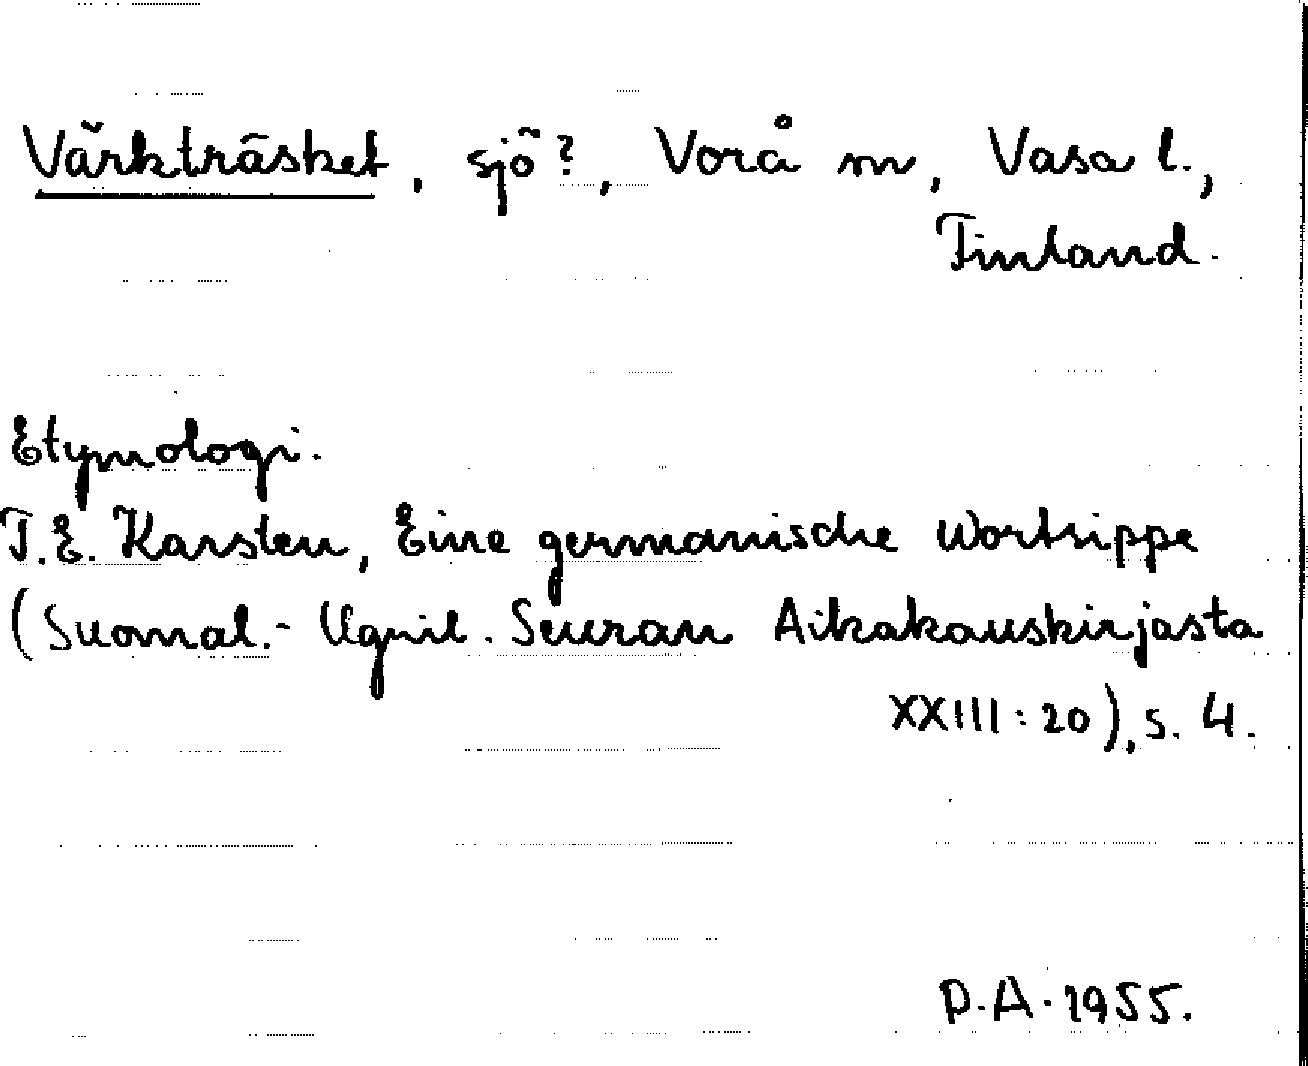 Värkträsket, sjö?, Vörå sn, Vasa l.,
Finland.
Etymologi.
T.E. Karsten, Eine germanische Wortsippe
(Suomal.- Ugril. Seuran Aikakauskirjasta
XXIII:20), s. 4.
P.A. 1955.